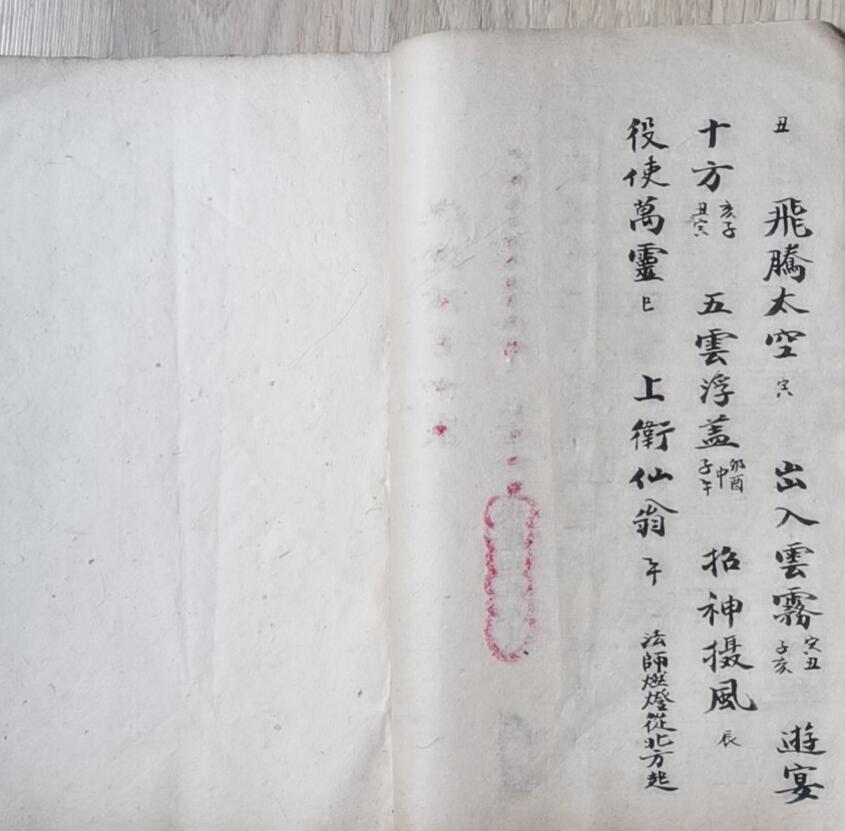 丑 飛騰太空 寅 出入雲霧 寅丑子亥 遊宴
十方 亥子丑寅 五雲浮蓋 卯酉中子午 招神摄風 辰
役使萬靈 巳 上衛仙翁 午 法師燃燈從北方起